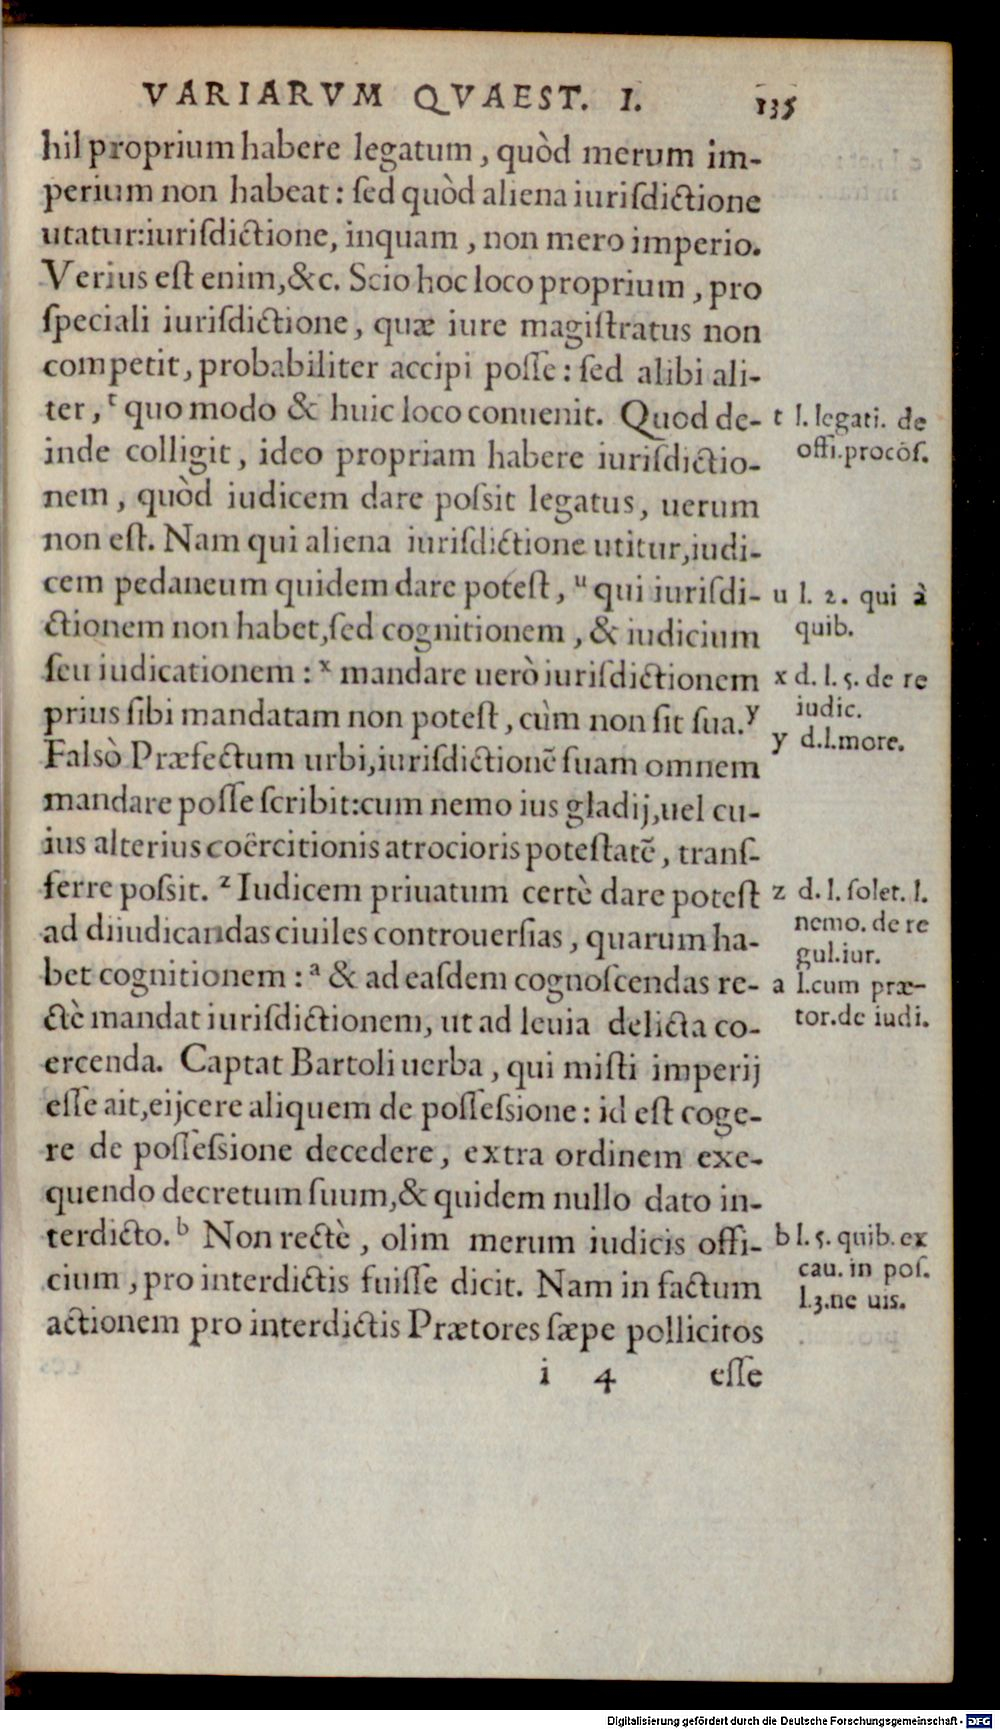 VARIARVM QVAEST. I. 135
hil proprium habere legatum, quòd merum im-
perium non habeat: sed quòd aliena iurisdictione
utatur: iurisdictione, inquam, non mero imperio.
Verius est enim, &c. Scio hoc loco proprium, pro
speciali iurisdictione, quæ iure magistratus non
competit, probabiliter accipi posse: sed alibi ali-
ter, t quo modo & huic loco conuenit. Quod de-
inde colligit, ideo propriam habere iurisdictio-
nem, quòd iudicem dare possit legatus, uerum
non est. Nam qui aliena iurisdictione utitur, iudi-
cem pedaneum quidem dare potest, u qui iurisdi-
ctionem non habet, sed cognitionem, & iudicium
seu iudicationem: x mandare uerò iurisdictionem
prius sibi mandatam non potest, cùm non sit sua. y
Falsò Præfectum urbi, iurisdictionē suam omnem
mandare posse scribit: cum nemo ius gladij, uel cu-
ius alterius coërcitionis atrocioris potestatē, trans-
ferre possit. z Iudicem priuatum certè dare potest
ad diiudicandas ciuiles controuersias, quarum ha-
bet cognitionem: a & ad easdem cognoscendas re-
ctè mandat iurisdictionem, ut ad leuia delicta co-
ercenda. Captat Bartoli uerba, qui misti imperij
esse ait, eijcere aliquem de possessione: id est coge-
re de possessione decedere, extra ordinem exe-
quendo decretum suum, & quidem nullo dato in-
terdicto. b Non rectè, olim merum iudicis offi-
cium, pro interdictis fuisse dicit. Nam in factum
actionem pro interdictis Prætores sæpe pollicitos
i 4 esse
t l. legati. de
offi. procōs.
u l. 2. qui à
quib.
x d. l. 5. de re
iudic.
y d.l.more.
z d. l. solet. l.
nemo. de re
gul.iur.
a l.cum præ-
tor.de iudi.
b l. 5. quib. ex
cau. in pos.
l.3.ne uis.
Digitalisierung gefördert durch die Deutsche Forschungsgemeinschaft - DFG